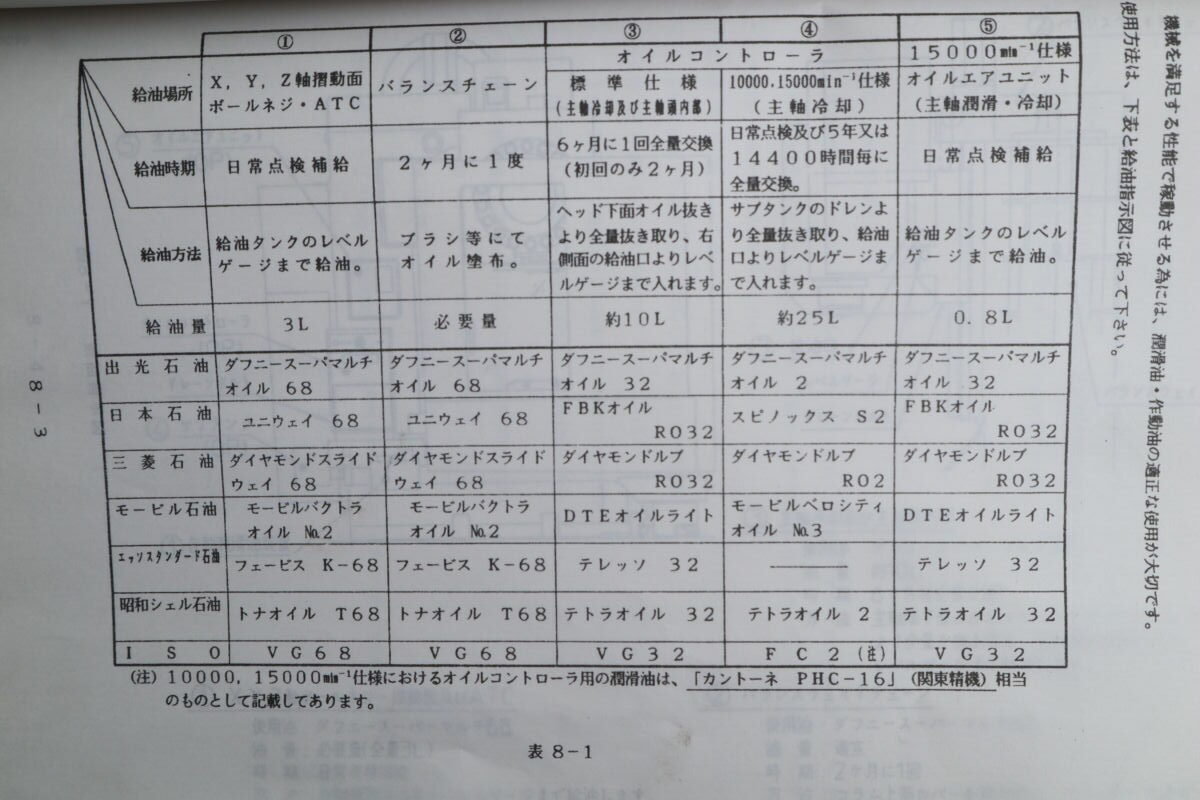 機械を満足する性能で稼動させる為には、潤滑油・作動油の適正な使用が大切です。
使用方法は、下表と給油指示図に従って下さい。
① ② ③ ④ ⑤
給油場所
X, Y, Z軸摺動面
ボールネジ・ATC
バランスチェーン
オイルコントローラ
標準仕様
(主軸冷却及び主軸頭内部)
10000,15000min⁻¹仕様
(主軸冷却)
15000min⁻¹仕様
オイルエアユニット
(主軸潤滑・冷却)
給油時期
日常点検補給
2ヶ月に1度
6ヶ月に1回全量交換
(初回のみ2ヶ月)
日常点検及び5年又は
14400時間毎に
全量交換。
日常点検補給
給油方法
給油タンクのレベル
ゲージまで給油。
ブラシ等にて
オイル塗布。
ヘッド下面オイル抜き
より全量抜き取り、右
側面の給油口よりレベ
ルゲージまで入れます。
サブタンクのドレンよ
り全量抜き取り、給油
口よりレベルゲージま
で入れます。
給油タンクのレベル
ゲージまで給油。
給油量 3L 必要量 約10L 約25L 0.8L
出光石油
ダフニースーパマルチ
オイル 68
ダフニースーパマルチ
オイル 68
ダフニースーパマルチ
オイル 32
ダフニースーパマルチ
オイル 2
ダフニースーパマルチ
オイル 32
日本石油
ユニウェイ 68
ユニウェイ 68
FBKオイル
RO32
スピノックス S2
FBKオイル
RO32
三菱石油
ダイヤモンドスライド
ウェイ 68
ダイヤモンドスライド
ウェイ 68
ダイヤモンドルブ
RO32
ダイヤモンドルブ
RO2
ダイヤモンドルブ
RO32
モービル石油
モービルバクトラ
オイル No.2
モービルバクトラ
オイル No.2
DTEオイルライト
モービルベロシティ
オイル No.3
DTEオイルライト
エッソスタンダード石油 フェービス K-68 フェービス K-68 テレッソ 32 ―― テレッソ 32
昭和シェル石油 トナオイル T68 トナオイル T68 テトラオイル 32 テトラオイル 2 テトラオイル 32
ISO VG68 VG68 VG32 FC2(注) VG32
(注) 10000, 15000min⁻¹仕様におけるオイルコントローラ用の潤滑油は、「カントーネ PHC-16」(関東精機)相当
のものとして記載してあります。
表 8-1
8-3